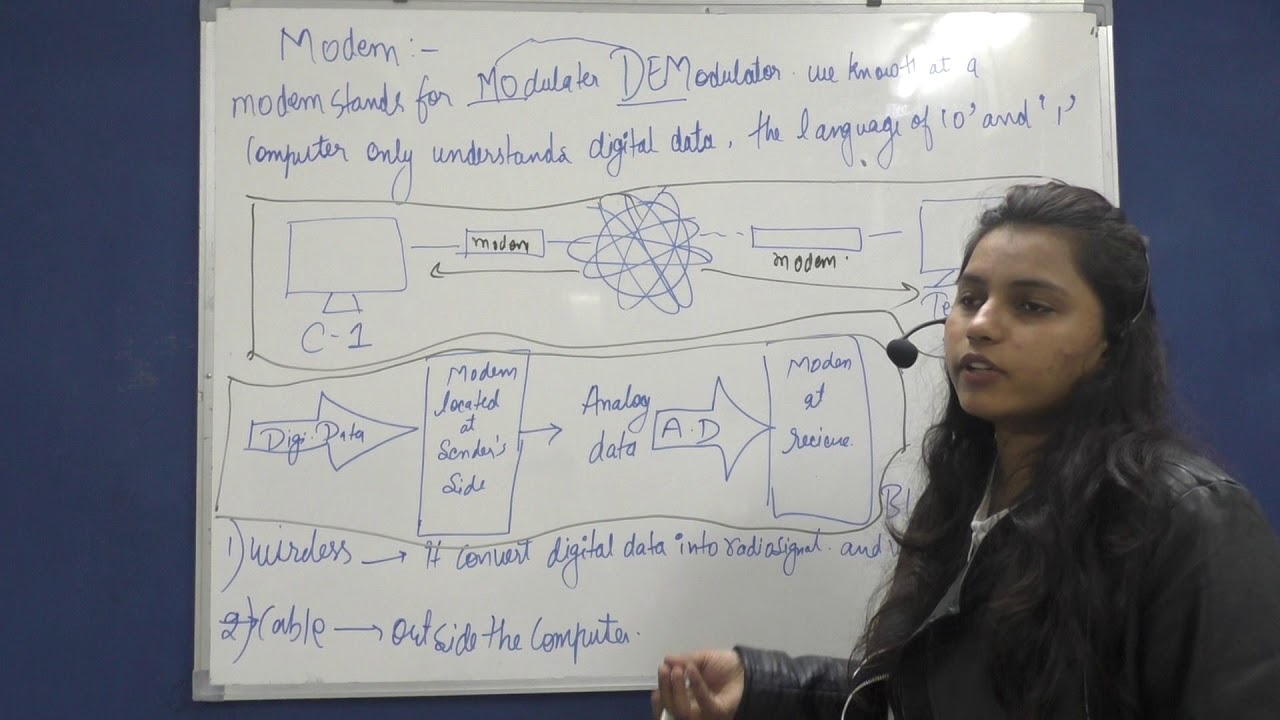 Modem :-
modem stands for MOdulater DEModulator. we know that at a
Computer only understands digital data, the language of '0' and '1'
modem
modem.
C-1
Te
Modem
located
at
Sender's
side
Digi. Data
Analog
data
A.D
Modem
at
recieve.
Bl
1) wirdess → It convert digital data into radiosignal. and v
2) Cable → outside the Computer.